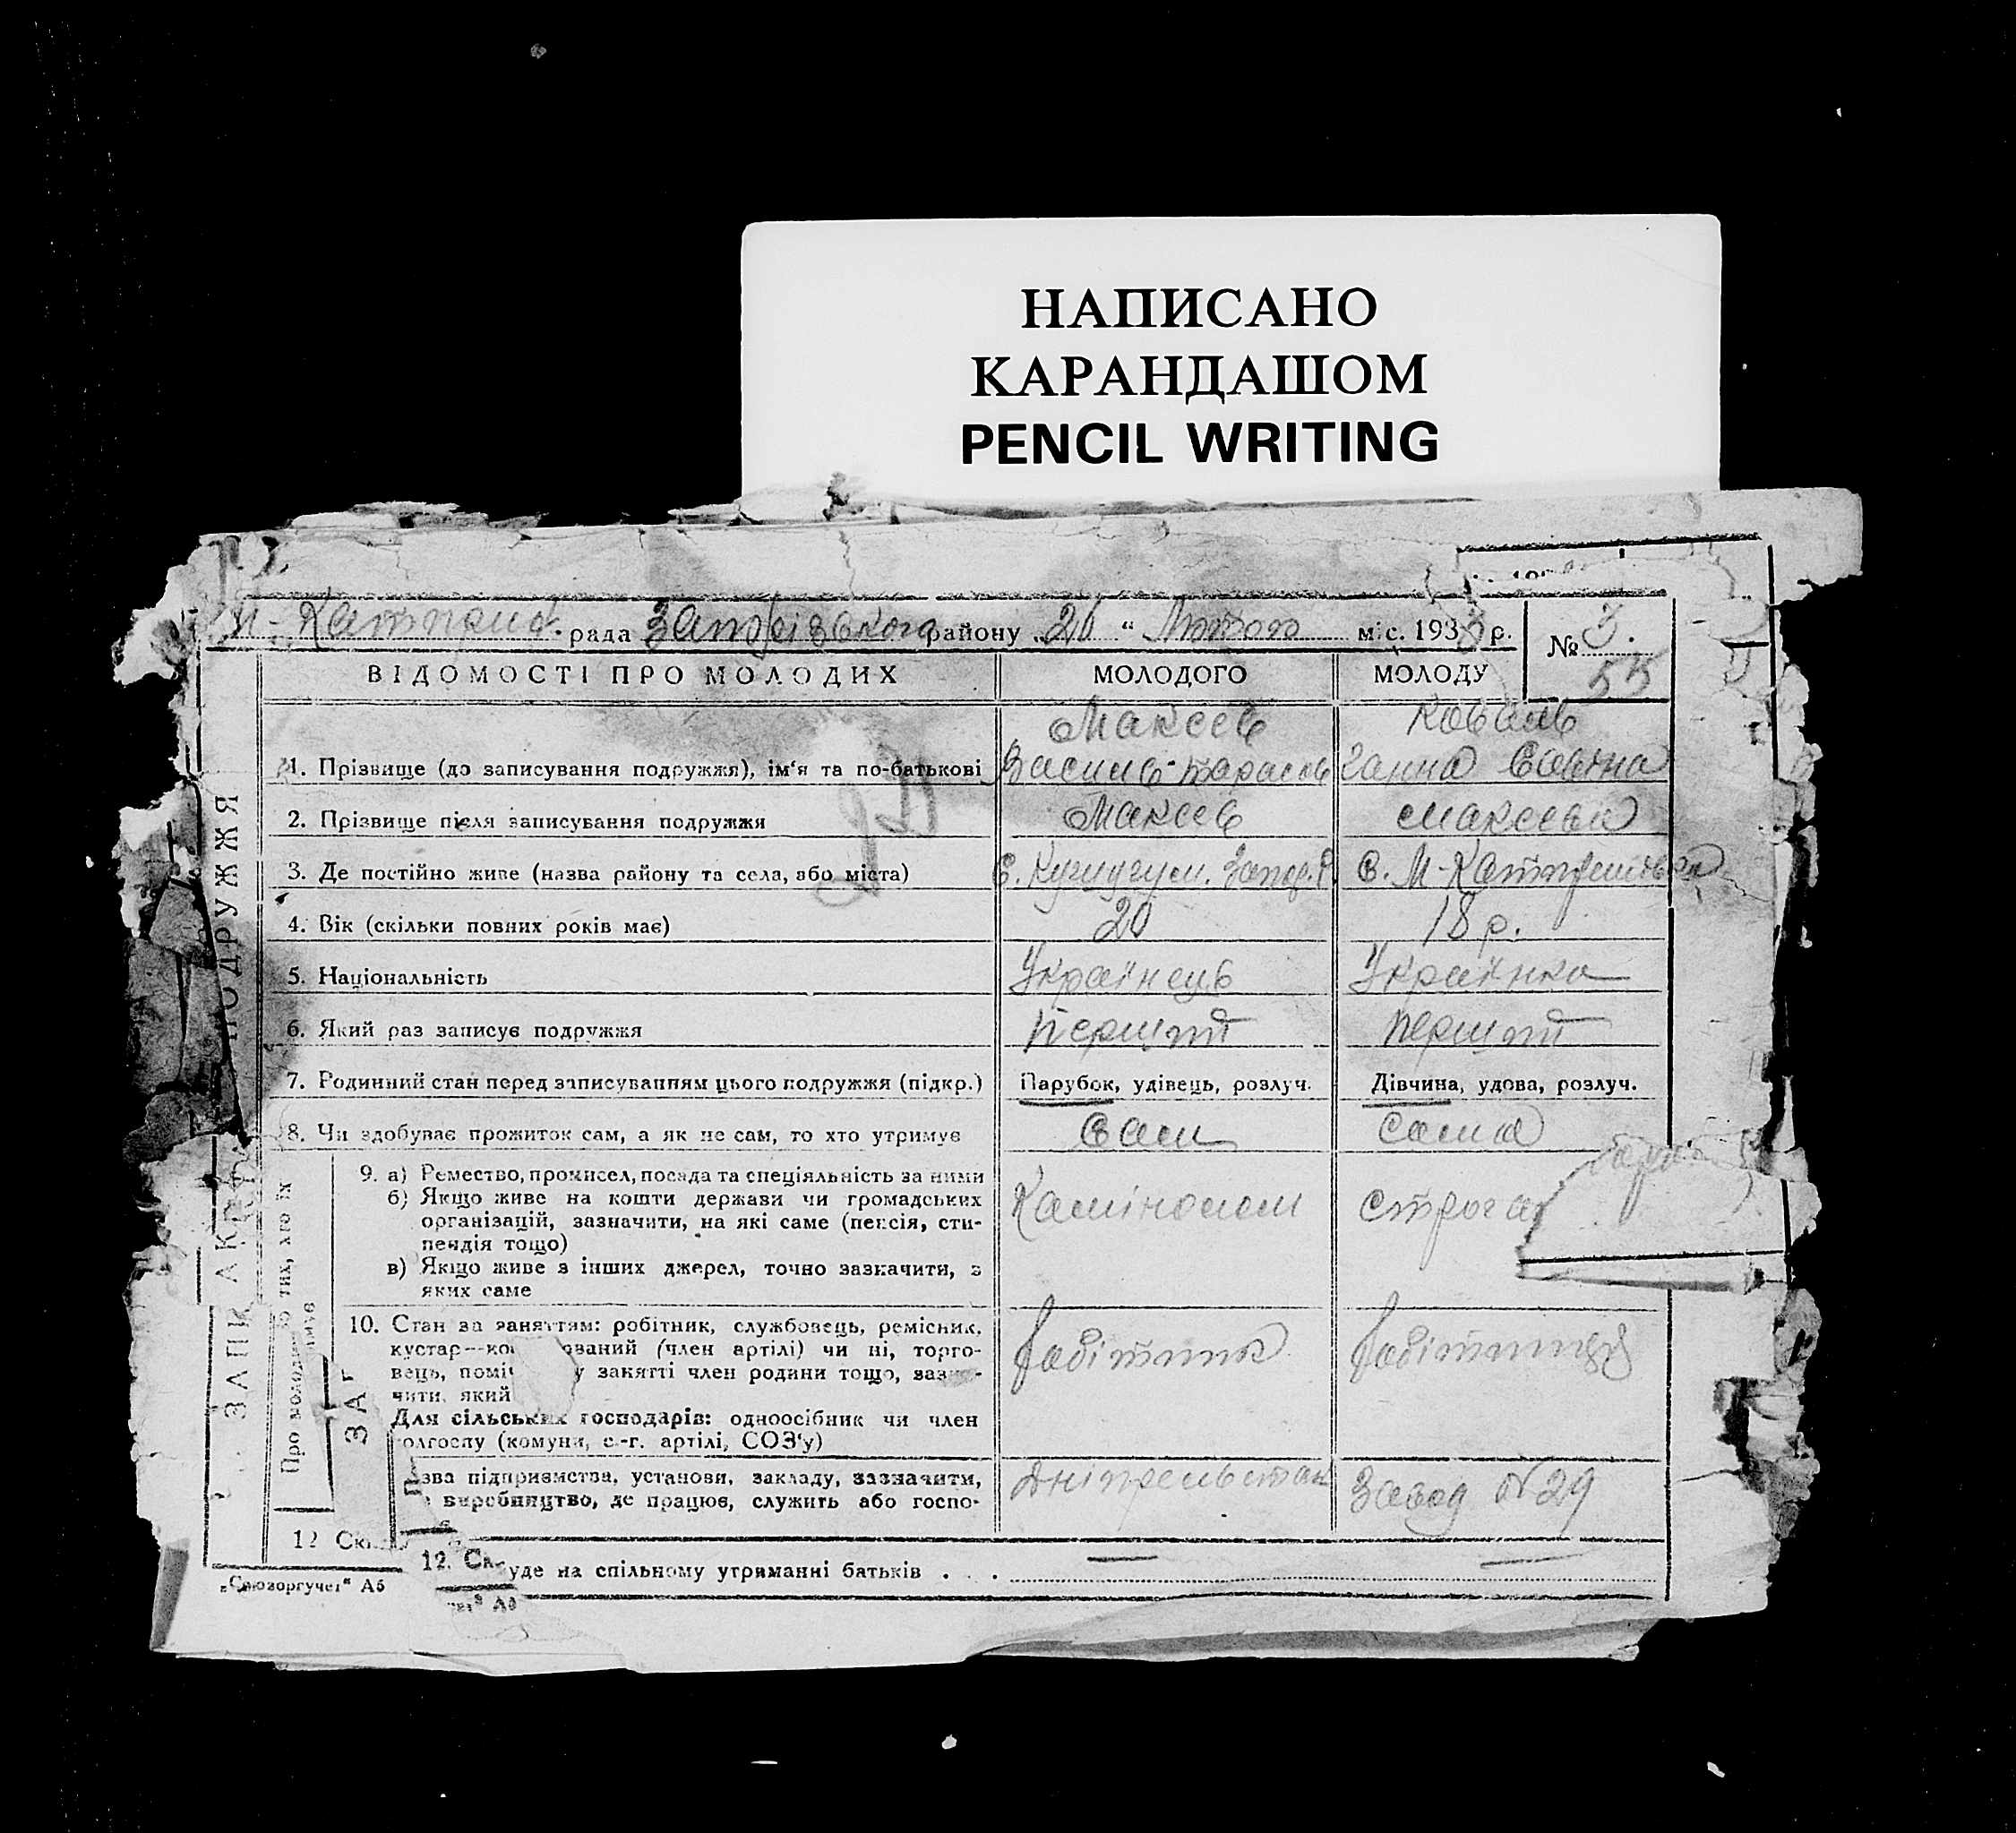 НАПИСАНО
КАРАНДАШОМ
PENCIL WRITING
рада району „20“ Лютого міс. 193 р. № 3.
55
ВІДОМОСТІ ПРО МОЛОДИХ МОЛОДОГО МОЛОДУ
Макеев Коваль
1. Прізвище (до записування подружжя), ім'я та по-батькові Василь Тарасов Ганна Савівна
2. Прізвище після записування подружжя Макеев Макеева
3. Де постійно живе (назва району та села, або міста) С. Кушугум. Запор. Р. С. М-Катеринівка
4. Вік (скільки повних років має) 20 18 р.
5. Національність Українець Українка
6. Який раз записує подружжя перший перший
7. Родинний стан перед записуванням цього подружжя (підкр.) Парубок, удівець, розлуч. Дівчина, удова, розлуч.
8. Чи здобуває прожиток сам, а як не сам, то хто утримує сам сама
9. а) Ремество, промисел, посада та спеціяльність за ними
б) Якщо живе на кошти держави чи громадських
організацій, зазначити, на які саме (пенсія, сти-
пендія тощо)
в) Якщо живе з інших джерел, точно зазначити, з
яких саме
Каміномом строга
10. Стан за заняттям: робітник, службовець, ремісник,
кустар—ко ований (член артілі) чи ні, торго-
вець, поміч у занятті член родини тощо, зазна-
чити, який
Для сільських господарів: одноосібник чи член
олгоспу (комуни, с.-г. артілі, СОЗ'у)
робітник робітниця
зва підприємства, установи, закладу, зазначити,
виробництво, де працює, служить або госпо-
Завод №29
12 Ск
12. Ск уде на спільному утриманні батьків . . . — —
„Союзоргучет“ А5
ЗАПИС АКТУ ПОДРУЖЖЯ